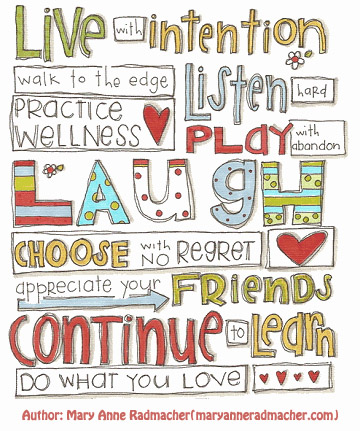 Live with intention
walk to the edge
Listen hard
PRACTICE
WELLNESS
PLAY with abandon
LAUGH
CHOOSE with NO REGRET
appreciate your FRIENDS
CONTINUE to Learn
DO WHAT YOU LOVE
Author: Mary Anne Radmacher(maryanneradmacher.com)